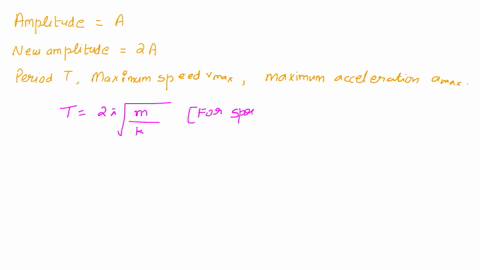 Amplitude = A
New amplitude = 2A
Period T, Maximum speed vmax, maximum acceleration amax.
T = 2π√(m/k) [For spe